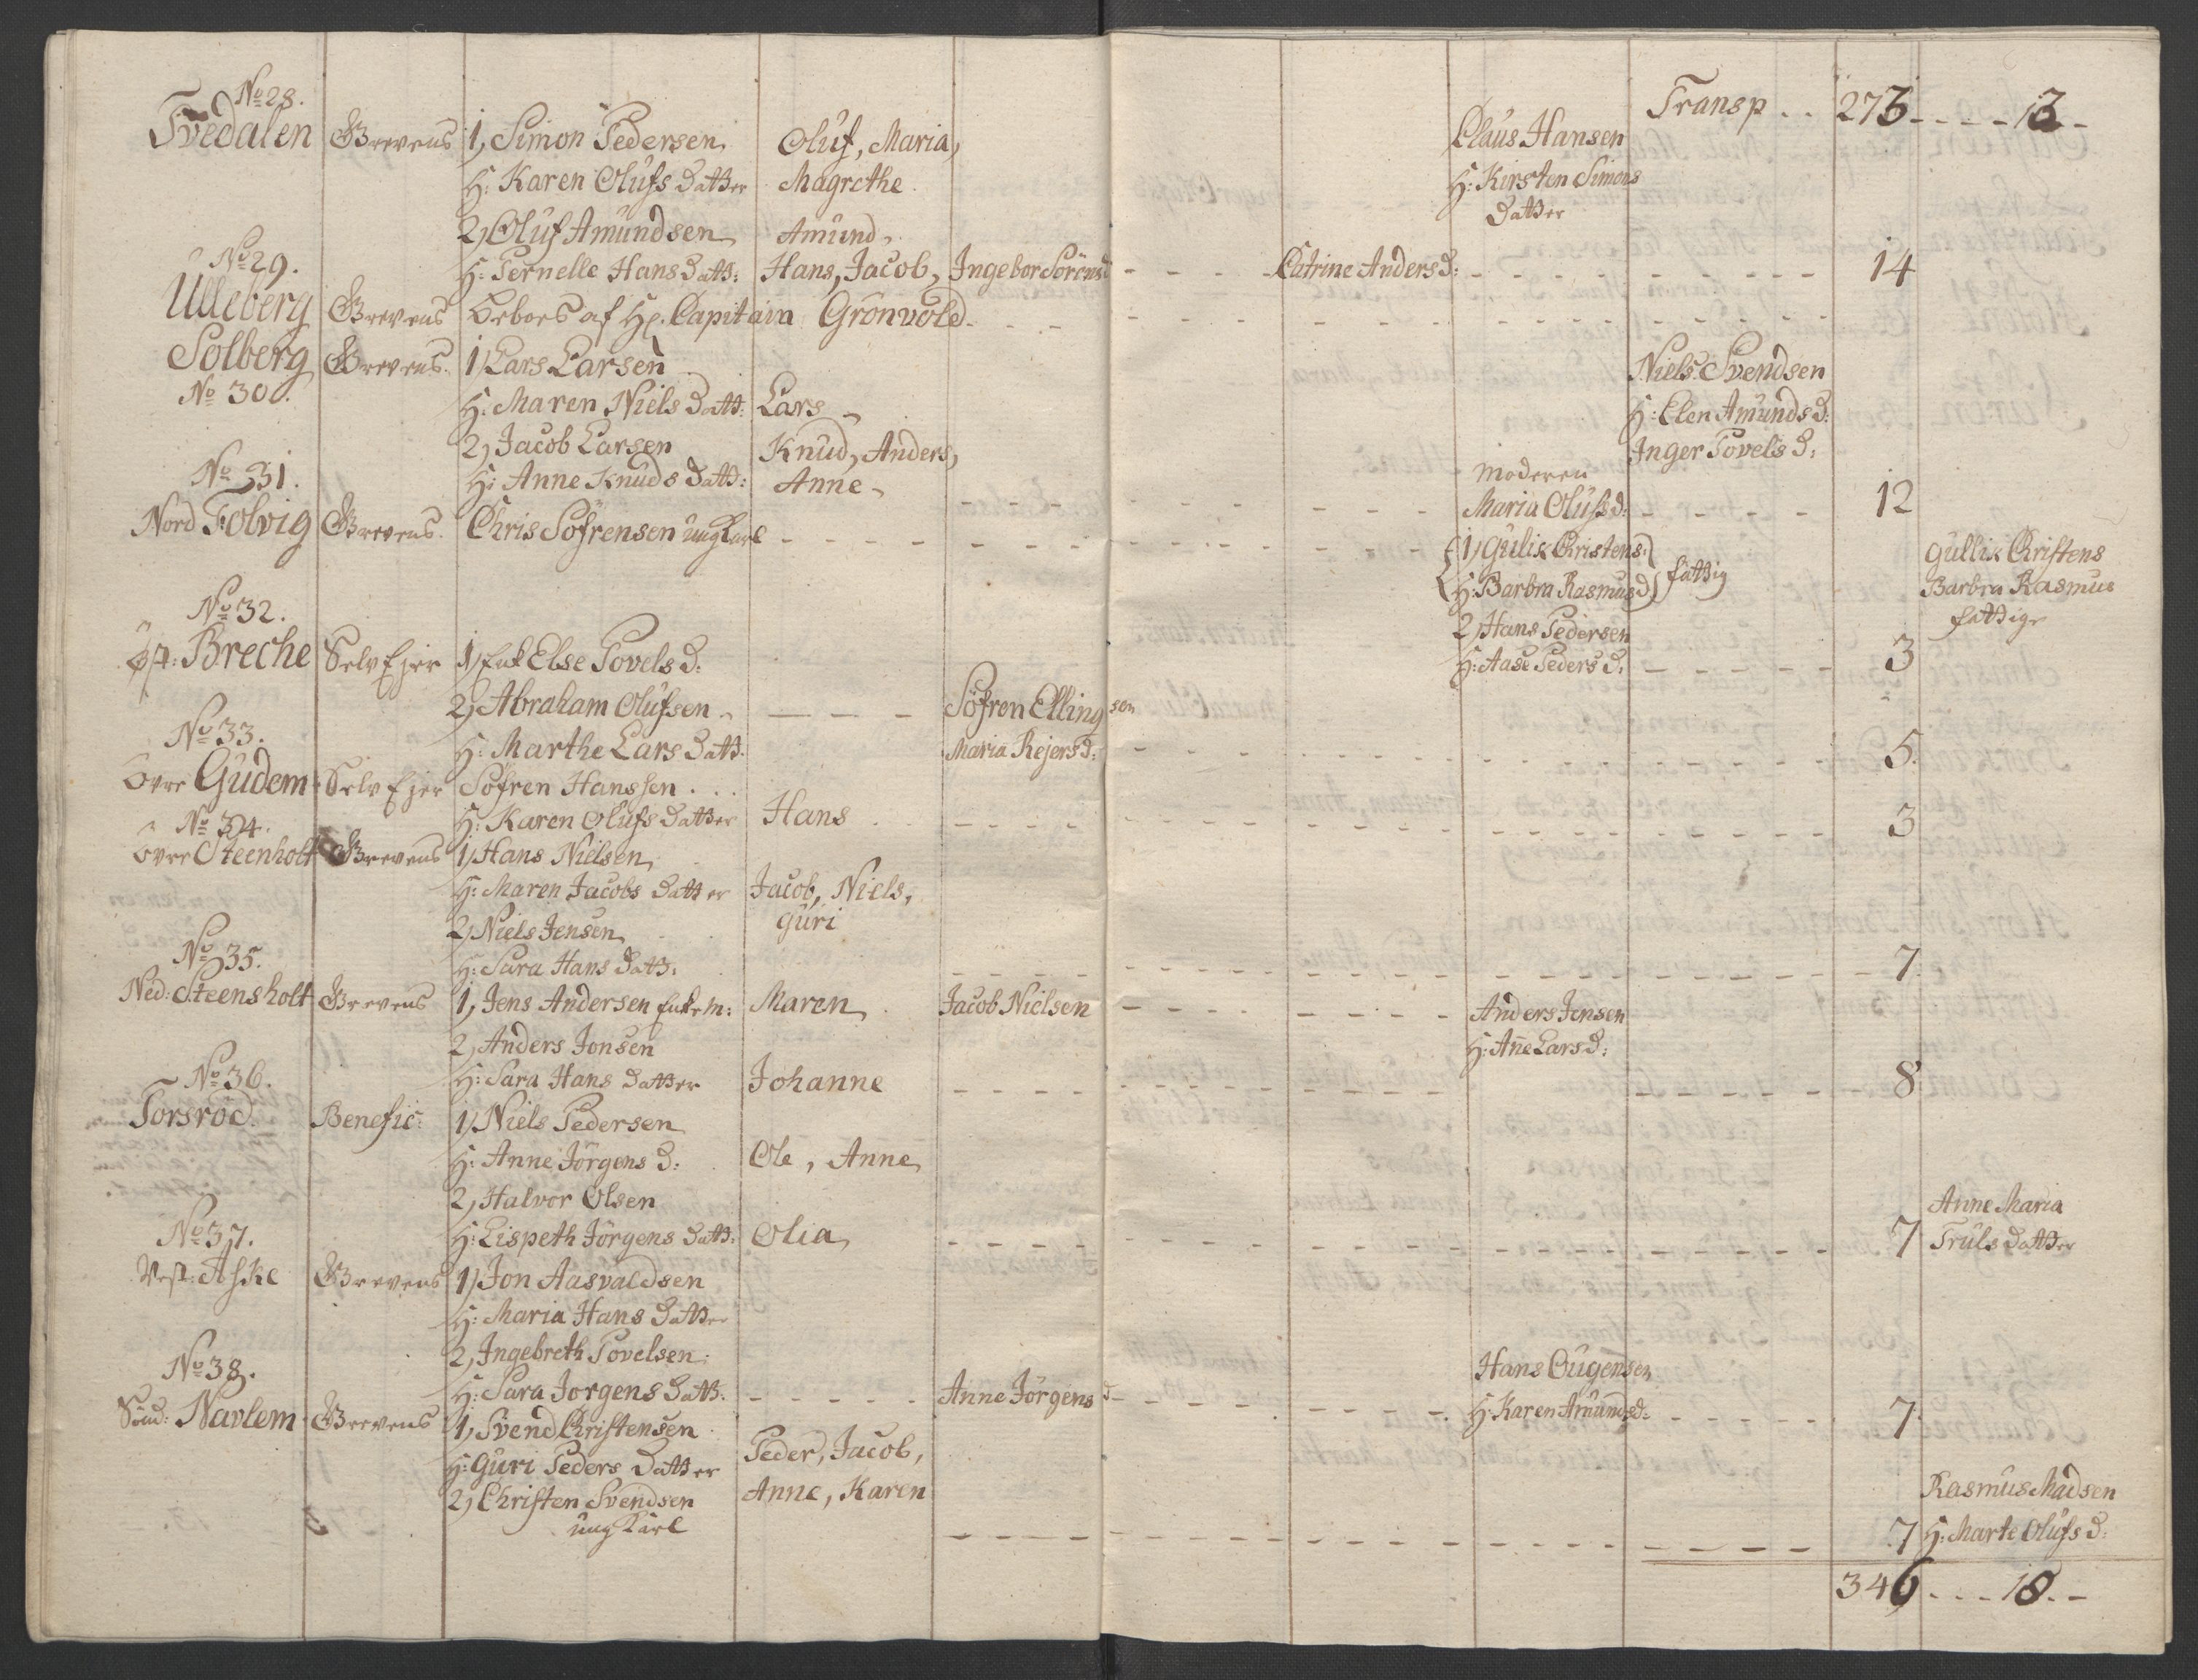 Transp . . 273 - - - - 13 - -
No 28.
Tvedalen Grevens 1, Simon Pedersen Oluf, Maria, Claus Hansen
H: Karen Olufs Datter Magrethe H: Kirsten Simons
Datter
2, Oluf Amundsen Amund,
No 29.
H: Pernelle Hans Datt: Hans, Jacob, Ingebor Sörens d - - - - Catrine Anders D: - - - - - - - - - 14
Ulleberg Grevens Beboes af Hr. Capitain Grönvold - - -
Solberg Grevens 1, Lars Larsen Niels Svendsen
No 30. H: Maren Niels Datt: Lars H: Elen Amunds D:
2, Jacob Larsen Knud, Anders, Inger Povels D:
No 31. H: Anne Knuds Datt: Anne, Moderen
Maria Olufs D: - - - - - 12
Nord Folvig Grevens. Chris Söfrensen ung Karl - - - 1, Gulik Christens: Gullik Christens
H: Barbra Rasmus D, fattig Barbra Rasmus
fattige
No 32. 2, Hans Pedersen
Öst: Breche Selv Ejer 1, Enk Else Povels D: H: Aase Peders D: - - - - - 3
2, Abraham Olufsen - - - Söfren Ellingsen
No 33. H: Marthe Lars Datt: Maria Rejers D: - - - - - 5.
Övre Gudem Selv Ejer Söfren Hanssen . . .
No 34. H: Karen Olufs Datter Hans - - - - - 3
Övre Steenholt Grevens 1, Hans Nielsen
H: Maren Jacobs Datter Jacob, Niels,
2, Niels Jensen Guri
No 35. H: Sara Hans Datt: - - - - - 7.
Ned: Steensholt Grevens 1, Jens Andersen Enkem: Maren Jacob Nielsen - - - - - Anders Jensen
2, Anders Jonsen H: Añe Lars D:
No 36. H: Sara Hans Datter Johanne - - - - - 8
Torsröd. Benefic: 1, Niels Pedersen
H: Anne Jörgens D: Ole, Anne
2, Halvor Olsen Anne Maria
No 37. H: Lispeth Jörgens Datt: Olia - - - - - 7 Truls Datter
Vest: Aske Grevens 1, Jon Aasvaldsen
H: Maria Hans Datter
2, Ingebreth Povelsen: Hans Ougensen
No 38. H: Sara Jorgens Datt: - - - - - Anne Jörgens d - - - - - H: Karen Amunds d: - - - - - 7.
Sönd: Navlem Grevens 1, Svend Christensen
H: Guri Peders Datter Peder, Jacob,
2, Christen Svendsen Anne, Karen Rasmus Madsen
ung Karl - - - - - 7 H: Marte Olufs D:
346 - - - 18 - -